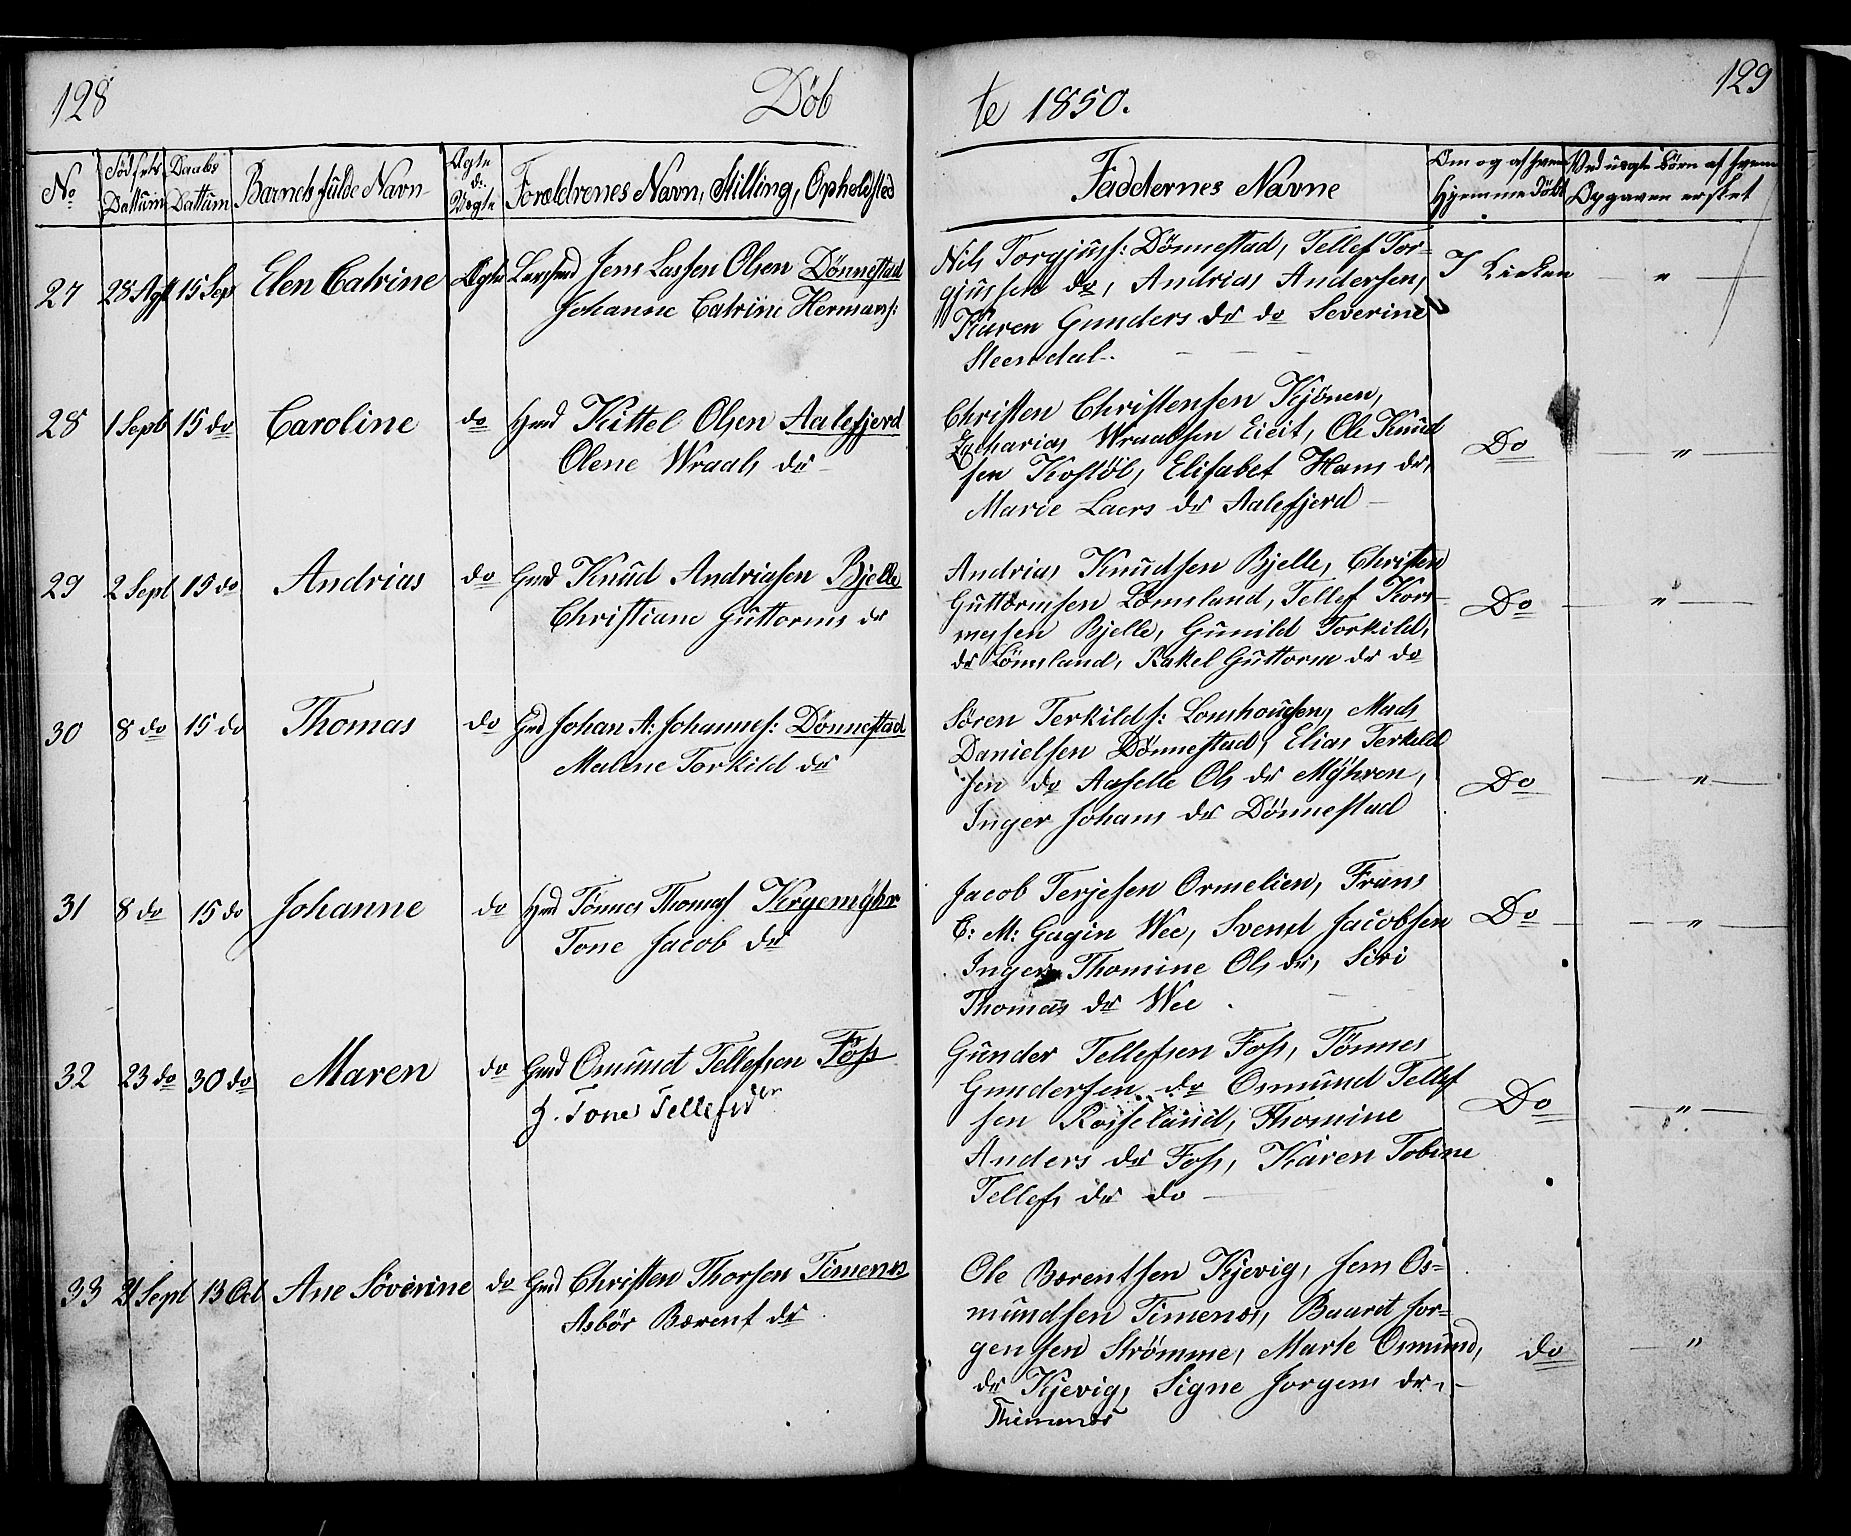 128 Döb
te 1850. 129
No Födsels Dattum Daabs Dattum Barnets fulde Navn Ægte el. Uægte Forældrenes Navn, Stilling, Opholdsted
Faddernes Navne Om og af hvem Hjemmedöbt Ved uægte Börn af hvem Opgaven er sket
27 28 Agst 15 Sep Elen Catrine Ægte Jens Lassen Olsen Dönnestad
Johanne Catrine Hermans:
Nils Torgjuss: Dönnestad, Tellef Tor-
gjussen do, Andrias Andersen,
Karen Gunders dr do Severine
Steendal.
I Kirken "
28 1 Sept 15 do Caroline do Hmd Kittel Olsen Aalefjerd
Olene Wraals dr
Christen Christensen Kjönen,
Zacharias Wraalsen Eieit, Ole Knud
sen Kostöl, Elisabet Hans dr,
Marie Laers dr Aalefjerd
Do "
29 2 Sept 15 do Andrias do Gmd Knud Andriasen Bjelle
Christiane Guttorms dr
Andrias Knudsen Bjelle, Christen
Guttormsen Lömsland, Tellef Kors-
mosen Bjelle, Gunild Torkild,
dr Lömsland, Rakel Guttorm dr do
Do "
30 8 do 15 do Thomas do Gmd Johan A: Johannes: Dönnestad
Malene Torkild dr
Sören Terkilds: Lomhougsen, Mads
Danielsen Dönnestad, Elias Terkild
sen do Aaselle Ols dr Mÿhren,
Inger Johans dr Dönnestad
Do "
31 8 do 15 do Johanne do Hmd Tönnes Thomas. Kirgemÿhr
Tone Jacob dr
Jacob Terjesen Ormelien, Frans
C: M: Gagin Wee, Svend Jacobsen
Inger Thomine Ols dr, Siri
Thomas dr Wee
Do "
32 23 do 30 do Maren do Gmd Osmund Tellefsen Foss
H. Tone Tellefsdr
Gunder Tellefsen Foss, Tönnes
Gundersen do Osmund Tellef
sen Roiseland, Thomine
Anders dr Foss, Karen Tobine
Tellefs dr do
Do "
33 21 Sept 13 Oct Ane Söverine do Gmd Christen Thorsen Timenes
Asbör Bærent dr
Ole Bærentsen Kjevig, Jens Os-
mundsen Timenes, Baaret Jor-
gensen Strömme, Marte Osmund,
dr Kjevig, Signe Jorgens dr.
Thimenes
do "